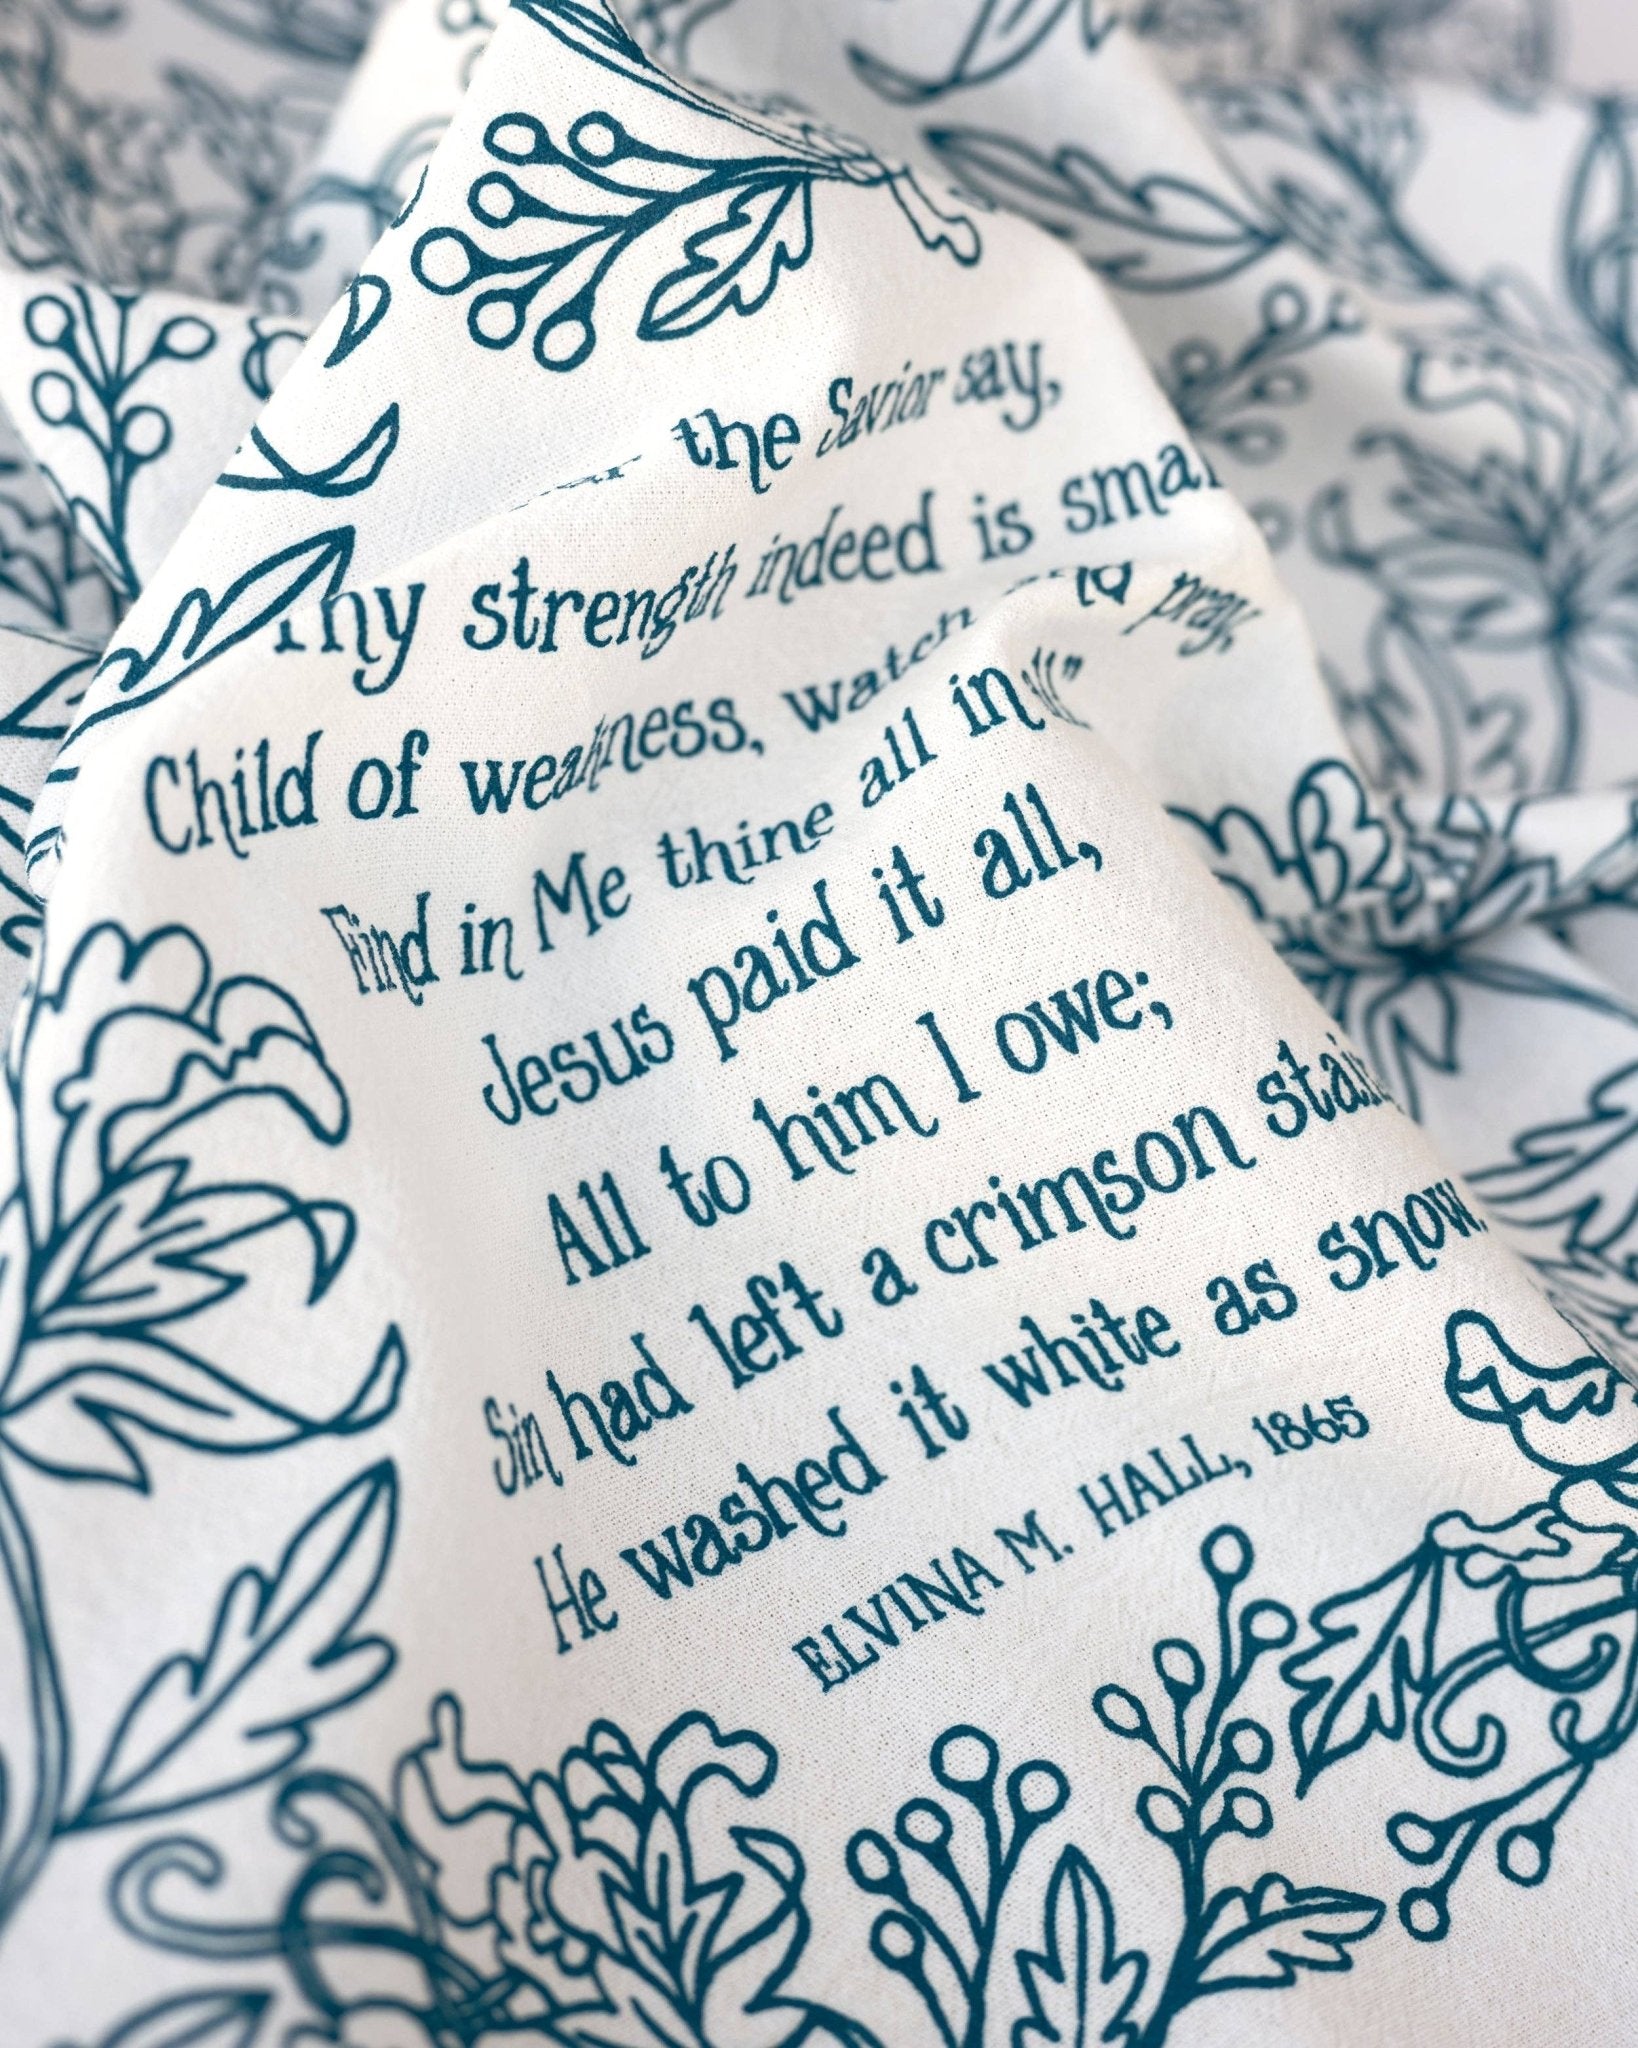 the Savior say,
Thy strength indeed is small
Child of weakness, watch and pray,
Find in Me thine all in all"
Jesus paid it all,
All to him I owe;
Sin had left a crimson stain,
He washed it white as snow.
ELVINA M. HALL, 1865